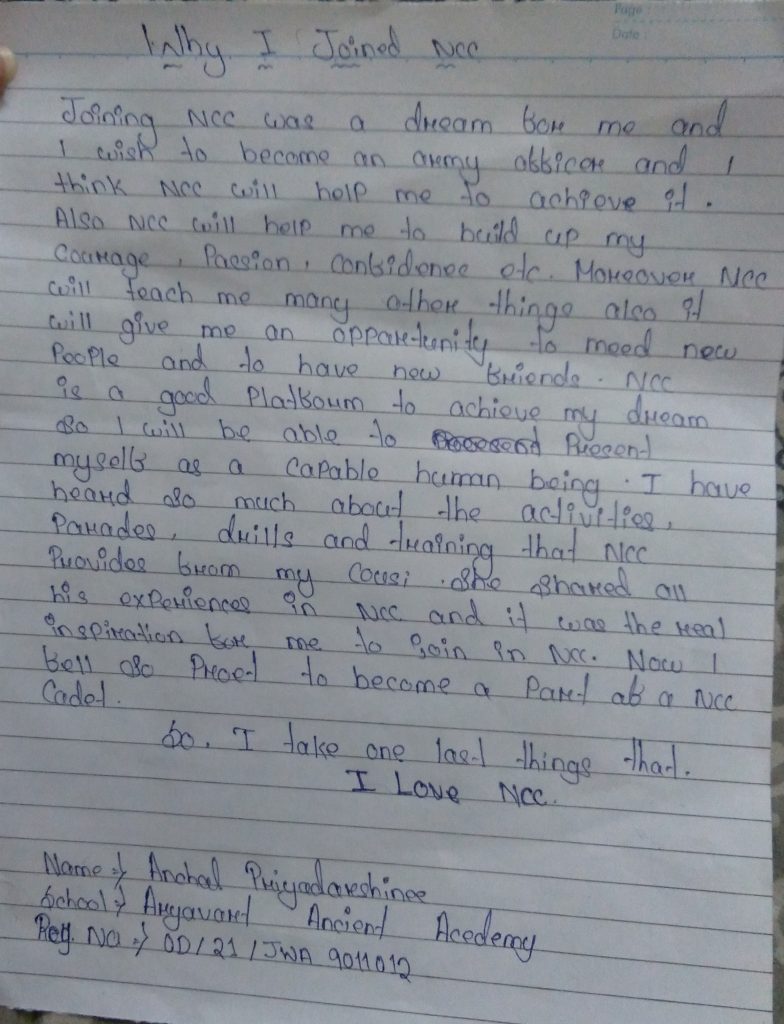 Page :
Date :
Why I Joined NCC
Joining NCC was a dream for me and
I wish to become an army officer and I
think NCC will help me to achieve it.
Also NCC will help me to build up my
Courage, Passion, confidence etc. Moreover NCC
will teach me many other things also it
will give me an opportunity to meed new
People and to have new friends. NCC
is a good Platfoum to achieve my dream
so I will be able to Present
myself as a capable human being. I have
heard so much about the activities,
Parades, drills and training that NCC
Provides from my Cousi. She shared all
his experiences in NCC and it was the real
inspiration for me to join in NCC. Now I
fell so Proet to become a Part of a NCC
Cadet.
So, I take one last things that.
I Love NCC.
Name → Anchal Priyadarshinee
School → Aryavart Ancient Acedemy
Reg. No → OD/21/JWA 9011012